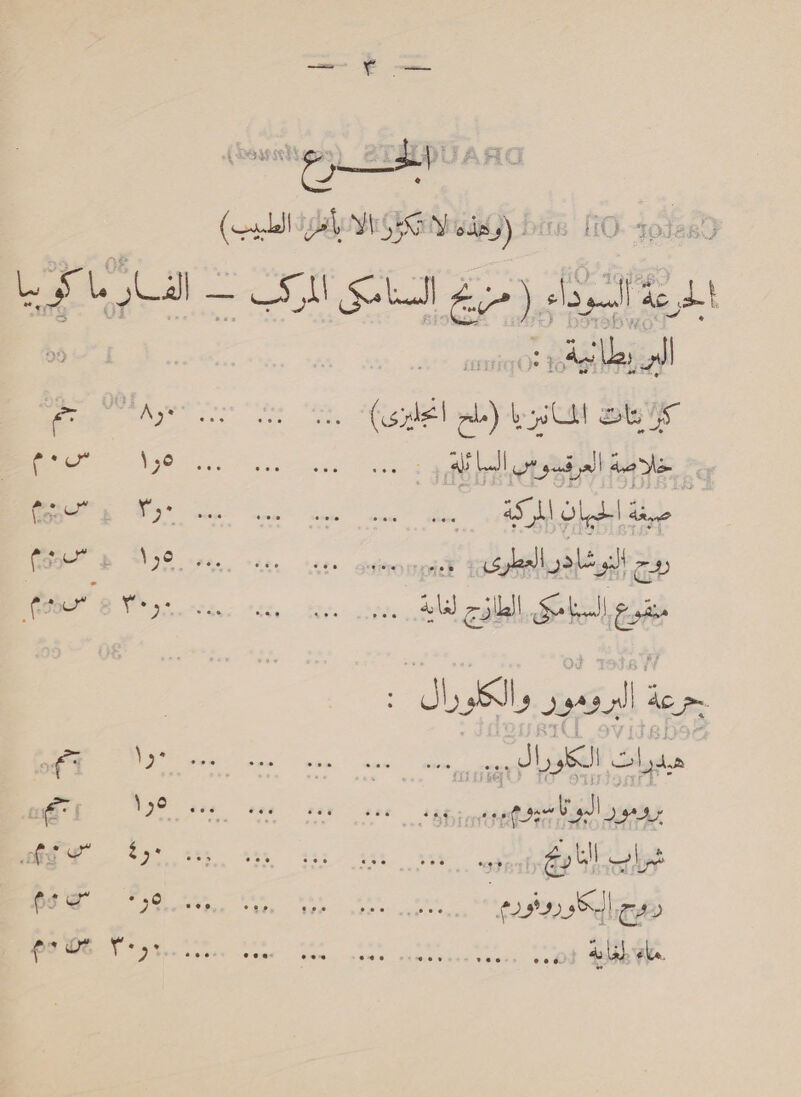 — ٣ —
الجـــرع
(وهذه لا تكرّر الا بأمر الطبيب)
الجرعة السوداء (مزيج السنامكى المركب — الفـارماكوبيا
البريطانية) :
كبريتات المـانيزيا (ملح انجليزى) ... ... ... ٨٫٠ جم
خلاصة العرقسوس السائلة ... ... ... ... ١٫٥ س م٠
صبغة الحبهان المركبة ... ... ... ... ... ٣٫٠ س م٠
روح النوشادر العطرى ... ... ... ... ... ١٫٥ س م٠
منقوع السنامكى الطازج لغاية ... ... ... ... ٣٠٫٠ س م٠
جرعة البرومور والكلورال :
هيدرات الكلورال ... ... ... ... ... ... ١٫٠ جم
برومور البوتاسيوم ... ... ... ... ... ... ١٫٥ جم
شراب النارنج ... ... ... ... ... ... ٤٫٠ س م٠
روح الكلوروفورم ... ... ... ... ... ٠٫٥ س م٠
ماء لغاية ... ... ... ... ... ... ... ٣٠٫٠ س م٠